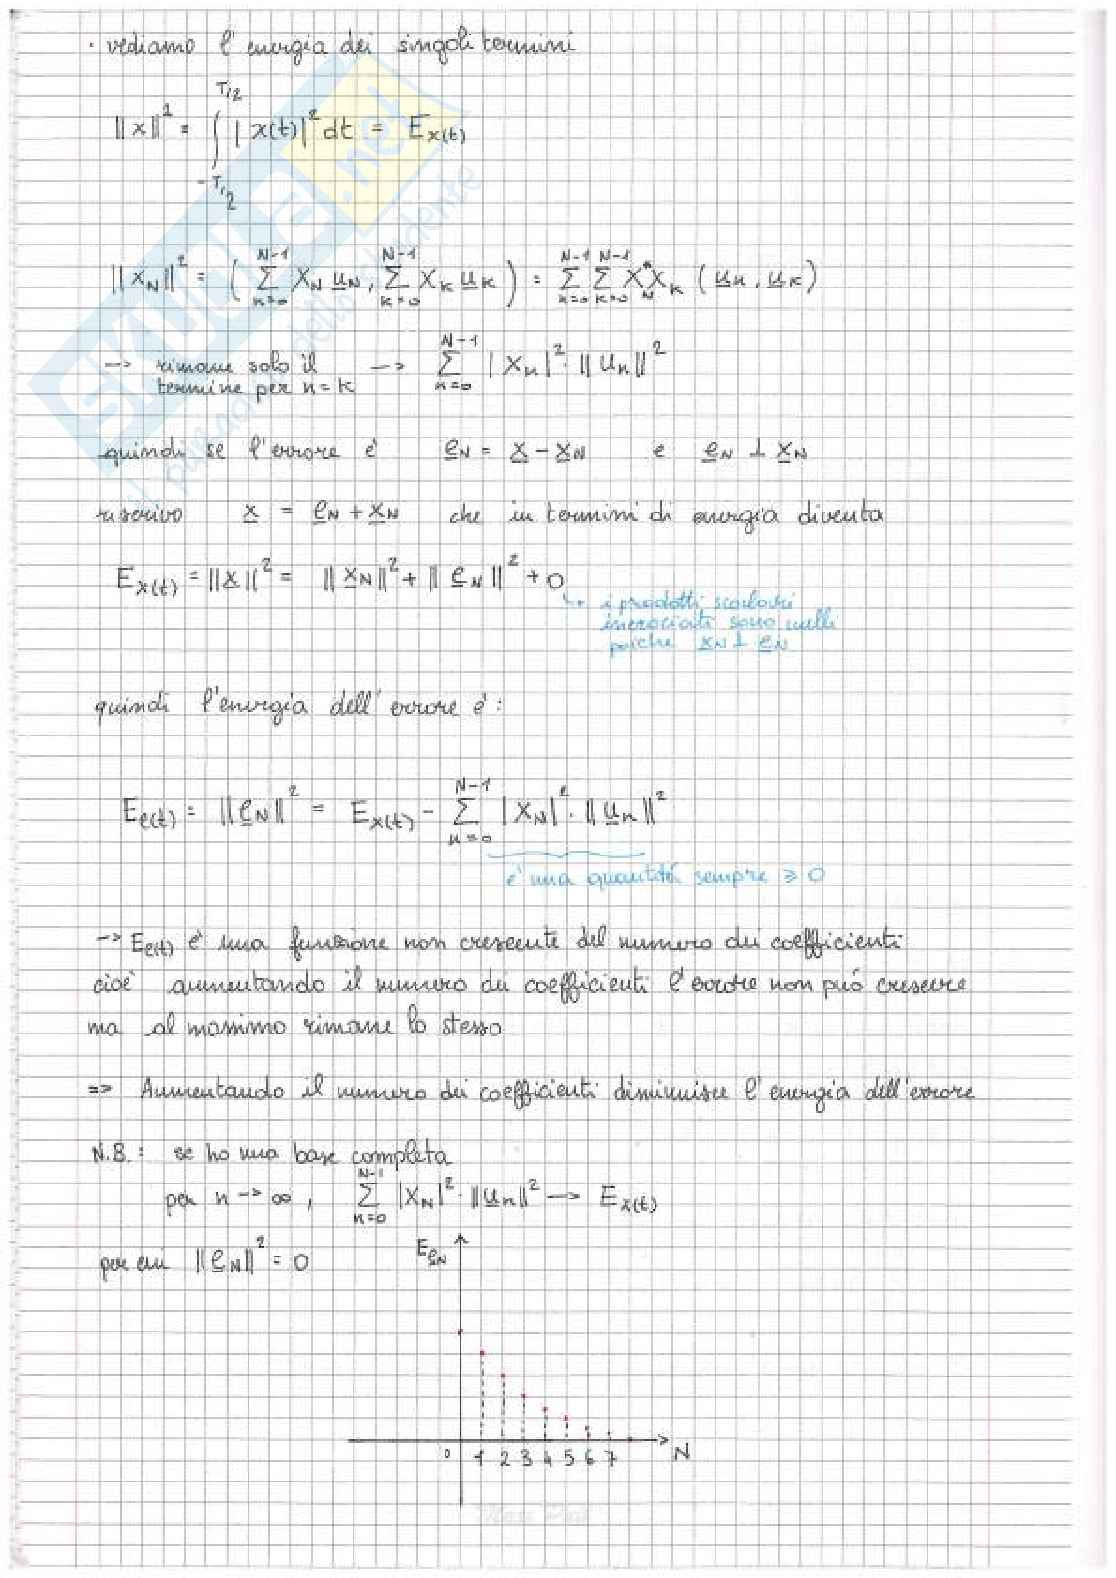 · vediamo l'energia dei singoli termini
||x||² = ∫_{-T/2}^{T/2} |x(t)|² dt = E_{x(t)}
||x_N||² = ( Σ_{n=0}^{N-1} X_N u_N , Σ_{k=0}^{N-1} X_k u_k ) = Σ_{n=0}^{N-1} Σ_{k=0}^{N-1} X*_N X_k ( u_n , u_k )
-> rimane solo il termine per n=k -> Σ_{n=0}^{N-1} |X_n|² · ||u_n||²
quindi se l'errore è e_N = x - x_N e e_N ⊥ x_N
riscrivo x = e_N + x_N che in termini di energia diventa
E_{x(t)} = ||x||² = ||x_N||² + ||e_N||² + 0
↳ i prodotti scalari
incrociati sono nulli
poiché x_N ⊥ e_N
quindi l'energia dell'errore è:
E_{e(t)} = ||e_N||² = E_{x(t)} - Σ_{n=0}^{N-1} |X_N|² · ||u_n||²
è una quantità sempre ≥ 0
-> E_{e(t)} è una funzione non crescente del numero dei coefficienti
cioè aumentando il numero dei coefficienti l'errore non può crescere
ma al massimo rimane lo stesso
=> Aumentando il numero dei coefficienti diminuisce l'energia dell'errore
N.B.: se ho una base completa
per n -> ∞, Σ_{n=0}^{N-1} |X_N|² · ||u_n||² -> E_{x(t)}
per cui ||e_N||² = 0
E_{e_N}
0 1 2 3 4 5 6 7 N
SKUOLA.net